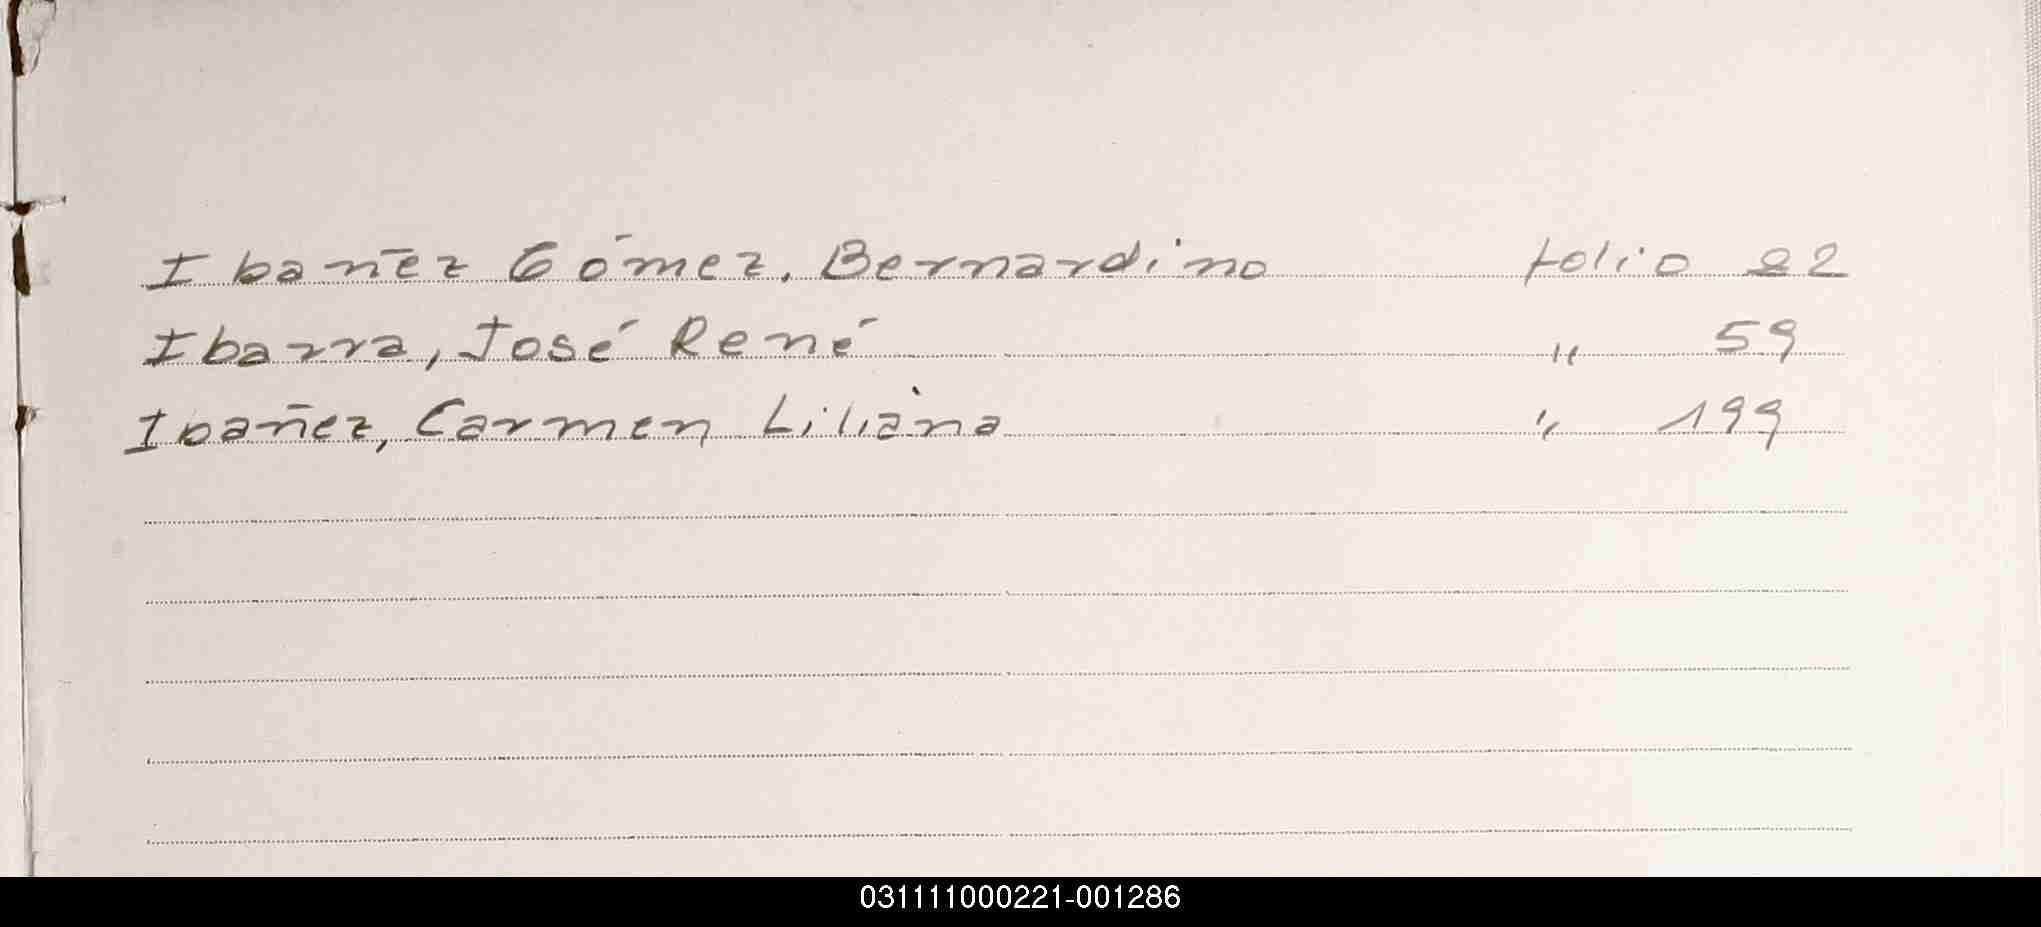 Ibañez Gómez, Bernardino folio 22
Ibarra, José René " 59
Ibañez, Carmen Liliana " 199
031111000221-001286